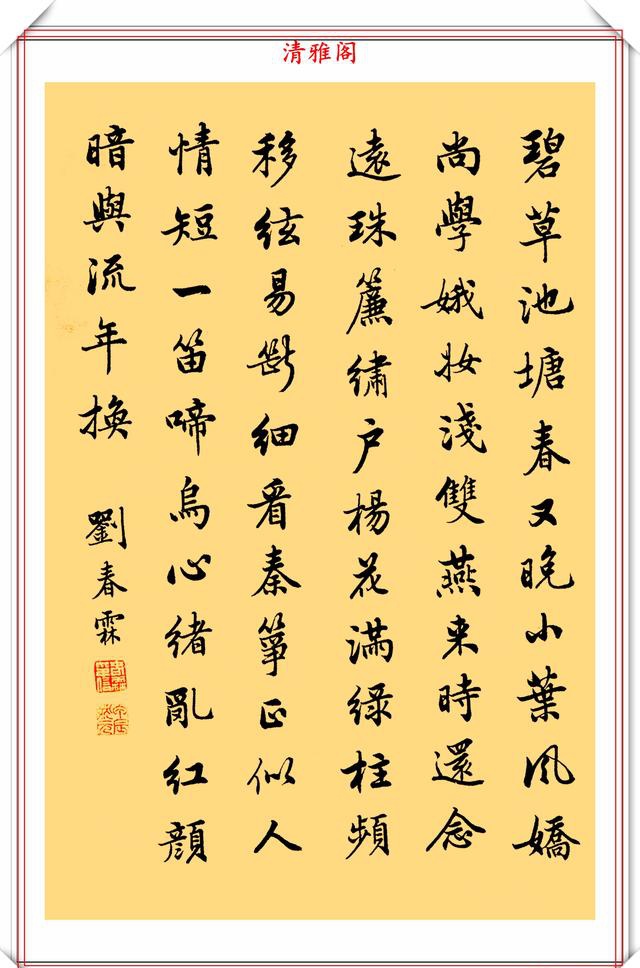 清雅阁
碧草池塘春又晚小葉风嬌
尚學娥妝淺雙燕来時還念
遠珠簾繡户楊花满绿柱頻
移絃易斷细看秦箏正似人
情短一笛啼烏心緒亂红顔
暗與流年换
劉春霖